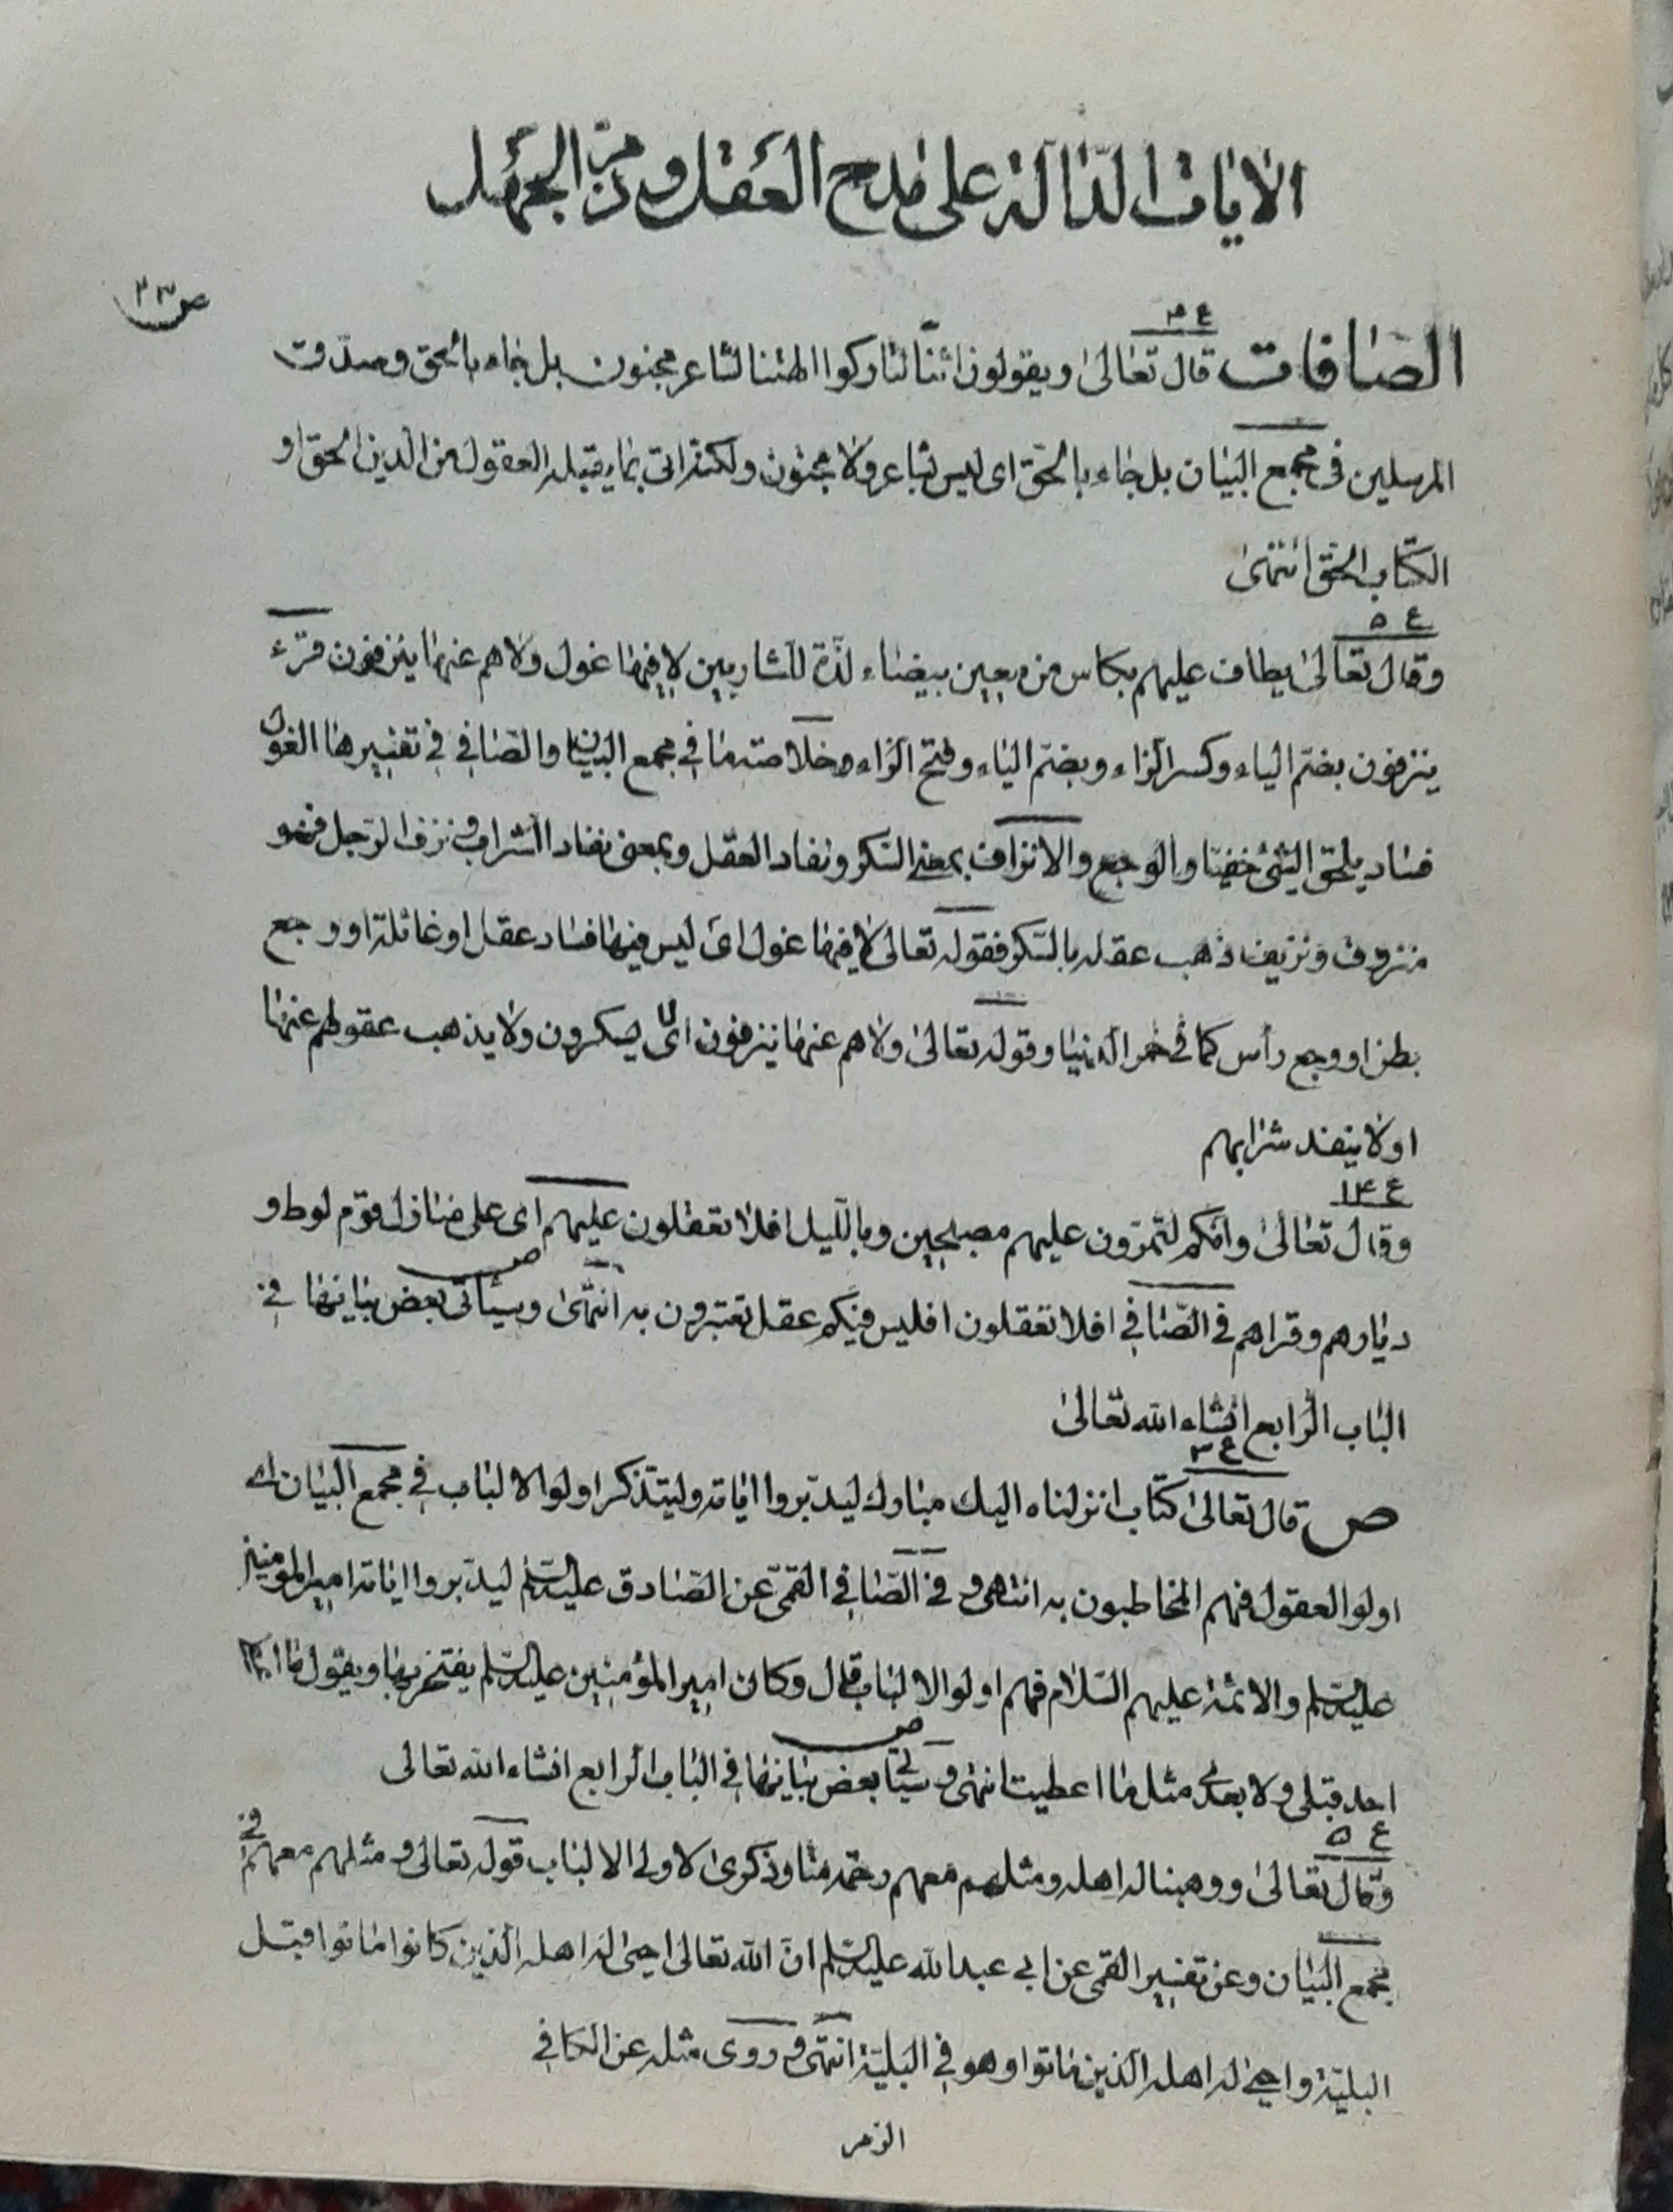 الايات الدالة على مدح العقل وذم الجهل
ص ٢٣
ع ٣
الصافات قال تعالى ويقولون ائنا لتاركوا الهتنا لشاعر مجنون بل جاء بالحق وصدق
المرسلين فى مجمع البيان بل جاء بالحق اى ليس بشاعر ولا مجنون ولكنه اتى بما يقبله العقول من الدين الحق او
الكتاب الحق انتهى
ع ٥
وقال تعالى يطاف عليهم بكاس من معين بيضاء لذة للشاربين لا فيها غول ولا هم عنها ينزفون قرء
ينزفون بضم الياء وكسر الزاء وبضم الياء وفتح الزاء وخلاصته ما في مجمع البيان والصافي في تفسيرها الغول
فساد يلحق الشئ خفيا والوجع والانزاف بمعنى السكر ونفاد العقل وبمعنى نفاد الشراب ونزف الرجل فهو
منزوف ونزيف ذهب عقله بالسكر فقوله تعالى لا فيها غول اى ليس فيها فساد عقل او غائلة او وجع
بطن او وجع رأس كما في خمر الدنيا وقوله تعالى ولا هم عنها ينزفون اى لا يسكرون ولا يذهب عقولهم عنها
او لا ينفد شرابهم
ع ١٣
وقال تعالى وانكم لتمرون عليهم مصبحين وبالليل افلا تعقلون عليهم اى على منازل قوم لوط و
ديارهم وقراهم في الصافي افلا تعقلون افليس فيكم عقل تعتبرون به انتهى وسيأتى بعض بيانها في ص
الباب الرابع انشاء الله تعالى
ع ٣
ص قال تعالى كتاب انزلناه اليك مبارك ليدبروا اياته وليتذكر اولوا الالباب في مجمع البيان اى
اولوا العقول فهم المخاطبون به انتهى و في الصافي القمى عن الصادق عليه السلام ليدبروا اياته امير المؤمنين
عليه السلام والائمة عليهم السلام فهم اولوا الالباب قال وكان امير المؤمنين عليه السلام يفتخر بها ويقول ما اعطى
احد قبلى ولا بعدى مثل ما اعطيت انتهى وسيأتى بعض بيانها في الباب الرابع انشاء الله تعالى ص
ع ٥
وقال تعالى ووهبنا له اهله ومثلهم معهم رحمة منا وذكرى لاولى الالباب قوله تعالى ومثلهم معهم في
مجمع البيان وعن تفسير القمى عن ابي عبد الله عليه السلام ان الله تعالى احيى له اهله الذين كانوا ماتوا قبل
البلية واحيى له اهله الذين ماتوا وهو في البلية انتهى و روى مثله عن الكافي
الزمر